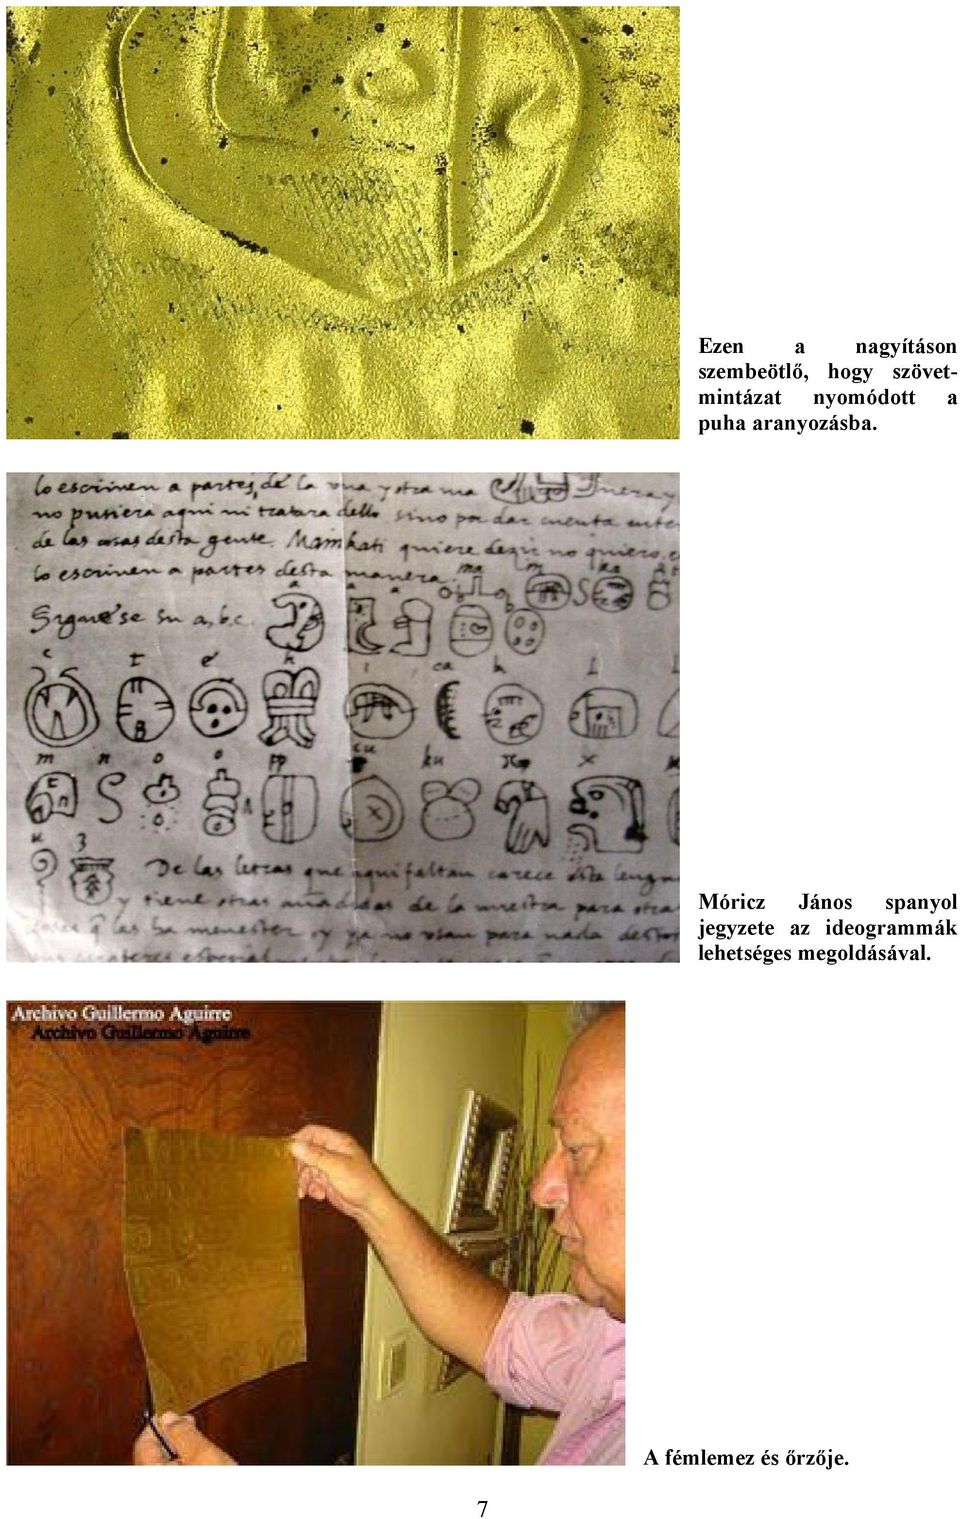 Ezen a nagyításon
szembeötlő, hogy szövet-
mintázat nyomódott a
puha aranyozásba.
lo escriven a partes, de la una y otra ma
no pusiera aqui ni tratara dello sino por dar cuenta
de las cosas desta gente. Mainkati quiere dezir no quiero,
lo escriven a partes desta manera.
ma i n ka ti
Siguese su a, b, c. a a a b b
c t é h i ca k l
m n o o pp cu ku x
u z
De las letras que aqui faltan carece esta lengua
y tiene otras añadidas de la nuestra para otras
cosas q las ha menester y ya no usan para nada destos
Móricz János spanyol
jegyzete az ideogrammák
lehetséges megoldásával.
Archivo Guillermo Aguirre
Archivo Guillermo Aguirre
A fémlemez és őrzője.
7